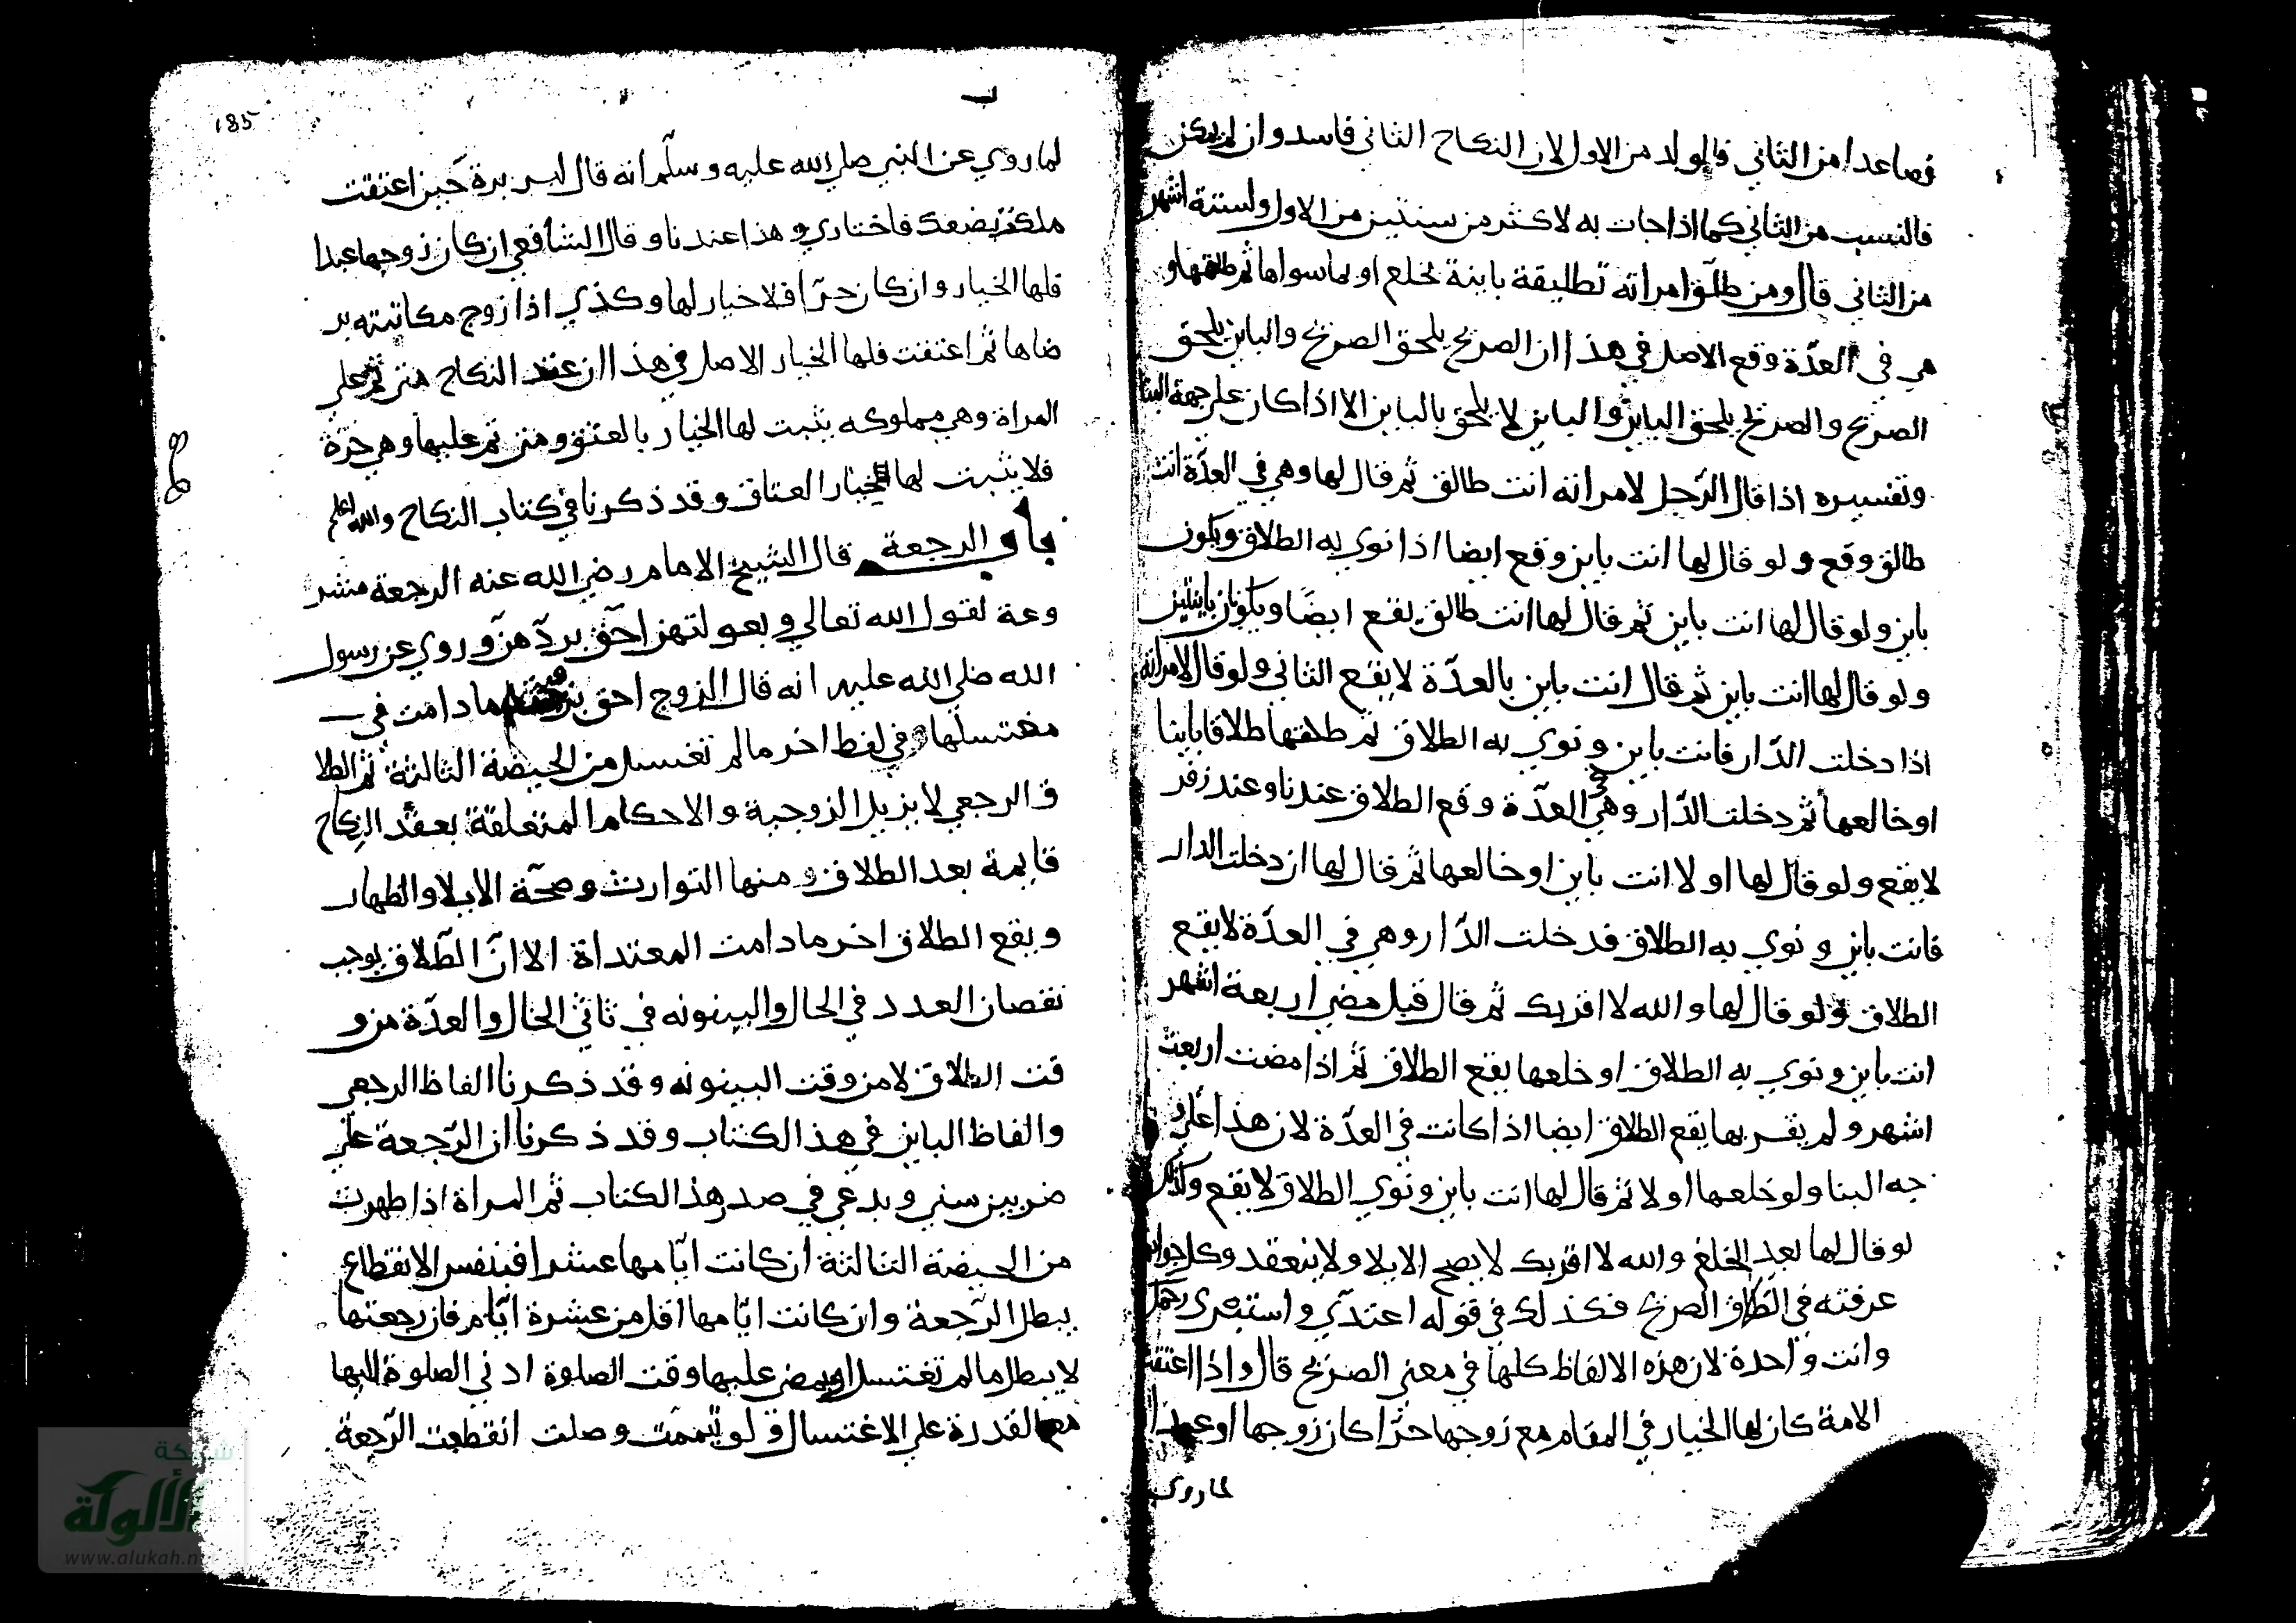 فصاعدا من الثاني فالولد من الاول لان النكاح الثاني فاسد وان لم يكن
فالنسب من الثاني كما اذا جات به لاكثر من سنتين من الاول ولستة اشهر
من الثاني قال ومن طلق امراته تطليقة باينة بخلع او بما سواها ثم طلقها و
هي في العدّة وقع الاصل في هذا ان الصريح يلحق الصريح والباين يلحق
الصريح والصريح يلحق الباين والباين لا يلحق بالباين الا اذا كان على جهة البنا
وتفسيره اذا قال الرّجل لامراته انت طالق ثم قال لها وهي في العدّة انت
طالق وقع ولو قال لها انت باين وقع ايضا اذا نوي به الطلاق ويكون
باين ولو قال لها انت باين ثم قال لها انت طالق يقع ايضًا ويكونان باينتين
ولو قال لها انت باين ثم قال انت باين بالعدّة لا يقع الثاني ولو قال لامراته
اذا دخلت الدّار فانت باين ونوي به الطلاق ثم طلقها طلاقا باينا
او خالعها ثم دخلت الدّار وهي في العدّة وقع الطلاق عندنا وعند زفر
لا يقع ولو قال لها اولا انت باين او خالعها ثم قال لها ان دخلت الدار
فانت باين ونوي به الطلاق فدخلت الدّار وهي في العدّة لا يقع
الطلاق ولو قال لها والله لا اقربك ثم قال قبل مضي اربعة اشهر
انت باين ونوي به الطلاق او خلعها يقع الطلاق ثم اذا مضت اربعة
اشهر ولم يقربها يقع الطلاق ايضا اذا كانت في العدّة لان هذا علي و
جه البنا ولو خلعها اولا ثم قال لها انت باين ونوي الطلاق لا يقع وكذلك
لو قال لها بعد الخلع والله لا اقربك لا يصح الايلا ولا ينعقد وكل جواب
عرفته في الطلاق الصريح فكذلك في قوله اعتدّي واستبري رحمك
وانت واحدة لان هذه الالفاظ كلها في معني الصريح قال واذا اعتقت
الامة كان لها الخيار في المقام مع زوجها حرّا كان زوجها او عبدا
لما روي
185
لما روي عن النبي صلي الله عليه وسلّم انه قال لبريرة حين اعتقت
ملكت بضعك فاختاري وهذا عندنا وقال الشافعي ان كان زوجها عبدا
فلها الخيار وان كان حرّا فلا خيار لها وكذي اذا زوج مكاتبته بر
ضاها ثم اعتقت فلها الخيار الاصل في هذا ان عقد النكاح متي تم علي
المراة وهي مملوكه يثبت لها الخيار بالعتق ومتي تم عليها وهي حرّة
فلا يثبت لها خيار العتاق وقد ذكرنا في كتاب النكاح والله اعلم
باب الرجعة قال الشيخ الامام رضي الله عنه الرجعة مشر
وعة لقول الله تعالي وبعولتهن احقّ بردّهنّ وروي عن رسول
الله صلي الله عليه انه قال الزوج احق ما دامت في
مغتسلها وفي لفظ اخر ما لم تغتسل من الحيضة الثالثة ثم الطلا
ق الرجعي لا يزيل الزوجية والاحكام المتعلقة بعقد النكاح
قايمة بعد الطلاق ومنها التوارث وصحّة الايلا والظهار
ويقع الطلاق اخر ما دامت المعتداة الا انّ الطّلاق يوجب
نقصان العدد في الحال والبينونه في ثاني الحال والعدّة من و
قت الطلاق لا من وقت البينونه وقد ذكرنا الفاظ الرجعي
والفاظ الباين في هذا الكتاب وقد ذكرنا ان الرّجعة علي
ضربين سني وبدعي في صدر هذا الكتاب ثم المراة اذا طهرت
من الحيضة الثالثة ان كانت ايّامها عشرا فبنفس الانقطاع
يبطل الرّجعة وان كانت ايّامها اقل من عشرة ايّام فان رجعتها
لا يبطل ما لم تغتسل او يمض عليها وقت الصلوة ادني الصلوة اليها
مع القدرة علي الاغتسال ولو تيممت وصلت انقطعت الرّجعة
شبكة
الألوكة